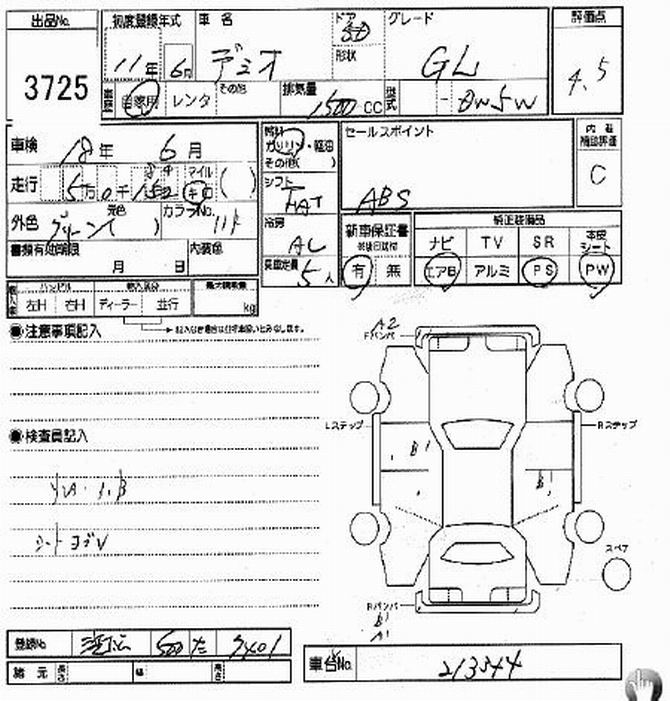 出品No. 初度登録年式 車名 ドア グレード 評価点
3725 11年 6月 デミオ 5D 形状 GL 4.5
自家用 レンタ その他 排気量 1500CC 型式 - DW5W
車検 18年 6月 燃料 ガソリン・軽油 その他( ) セールスポイント 内装補助評価
走行 マイル キロ ( ) シフト FAT ABS C
外色 グリーン 元色 ( ) カラーNo. 冷房 AC 新車保証書 純正装備品
書類有効期限 月 日 内装色 乗車定員 5人 有 無 ナビ TV SR 本皮シート
エアB アルミ PS PW
ハンドル 輸入区分 最大積載量
左H 右H ディーラー 並行 kg
◉注意事項記入
A2
Fバンパ
Lステップ Rステップ
◉検査員記入
B1
B1
シートヨゴレ
スペア
Rバンパ
B1
A1
登録No.
諸元 長さ 幅 高さ 車台No. 213544